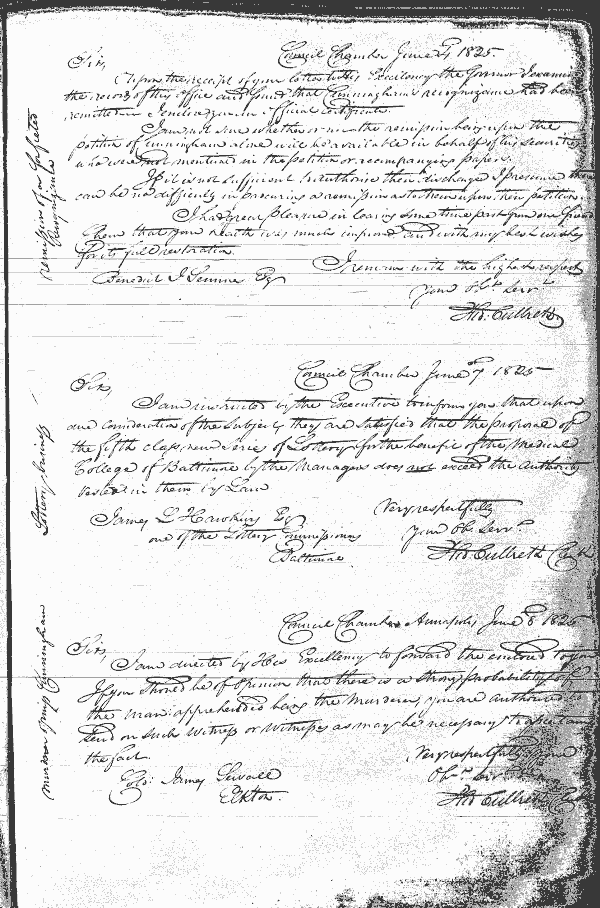 Council Chamber June 4th 1825.
Sir,
Upon the receipt of your letter to His Excellency the former I examined
the records of this office and found that Cunningham's recognizance had been
remitted in I enclose you an official certificate.
I am not sure whether or no the remission being upon the
petition of Cunningham alone will be available in behalf of his securities
who were not mentioned in the petition or accompanying papers.
If it is not sufficient to authorise their discharge I presume there
can be no difficulty in procuring a remission as to them upon their petition.
I had great pleasure in learning some time past from our friend
that your health was much improved and with my best wishes
for its full restoration.
I remain with the highest respect
Your Obt. Servt.
Benedict J Semmes Esq
Tho. Culbreth
remission of a forfeited
Recognizance
Council Chamber June 7th 1825
Sir,
I am instructed by the Executive to inform you that upon
due consideration of the Subject, they are satisfied that the proposal of
the fifth class, new series of Lottery for the benefit of the Medical
College of Baltimore by the Managers does not exceed the authority
vested in them by Law
Very respectfully
James L Hawkins Esq
Your Ob. Servt.
one of the Lottery Commissioners
Tho Culbreth Clk
Baltimore
Lottery business
Council Chamber Annapolis June 8 1825
Sir,
I am directed by His Excellency to forward the enclosed to you
If you should be of Opinion that there is a strong probability of
the man apprehended being the Murderer, you are authorized to
send on such Witness or Witnesses as may be necessary to ascertain
the fact.
Very respectfully
Obt. Servt.
Colo. James Sewall
Elkton.
Tho Culbreth Clk
murder of mrs Cunningham